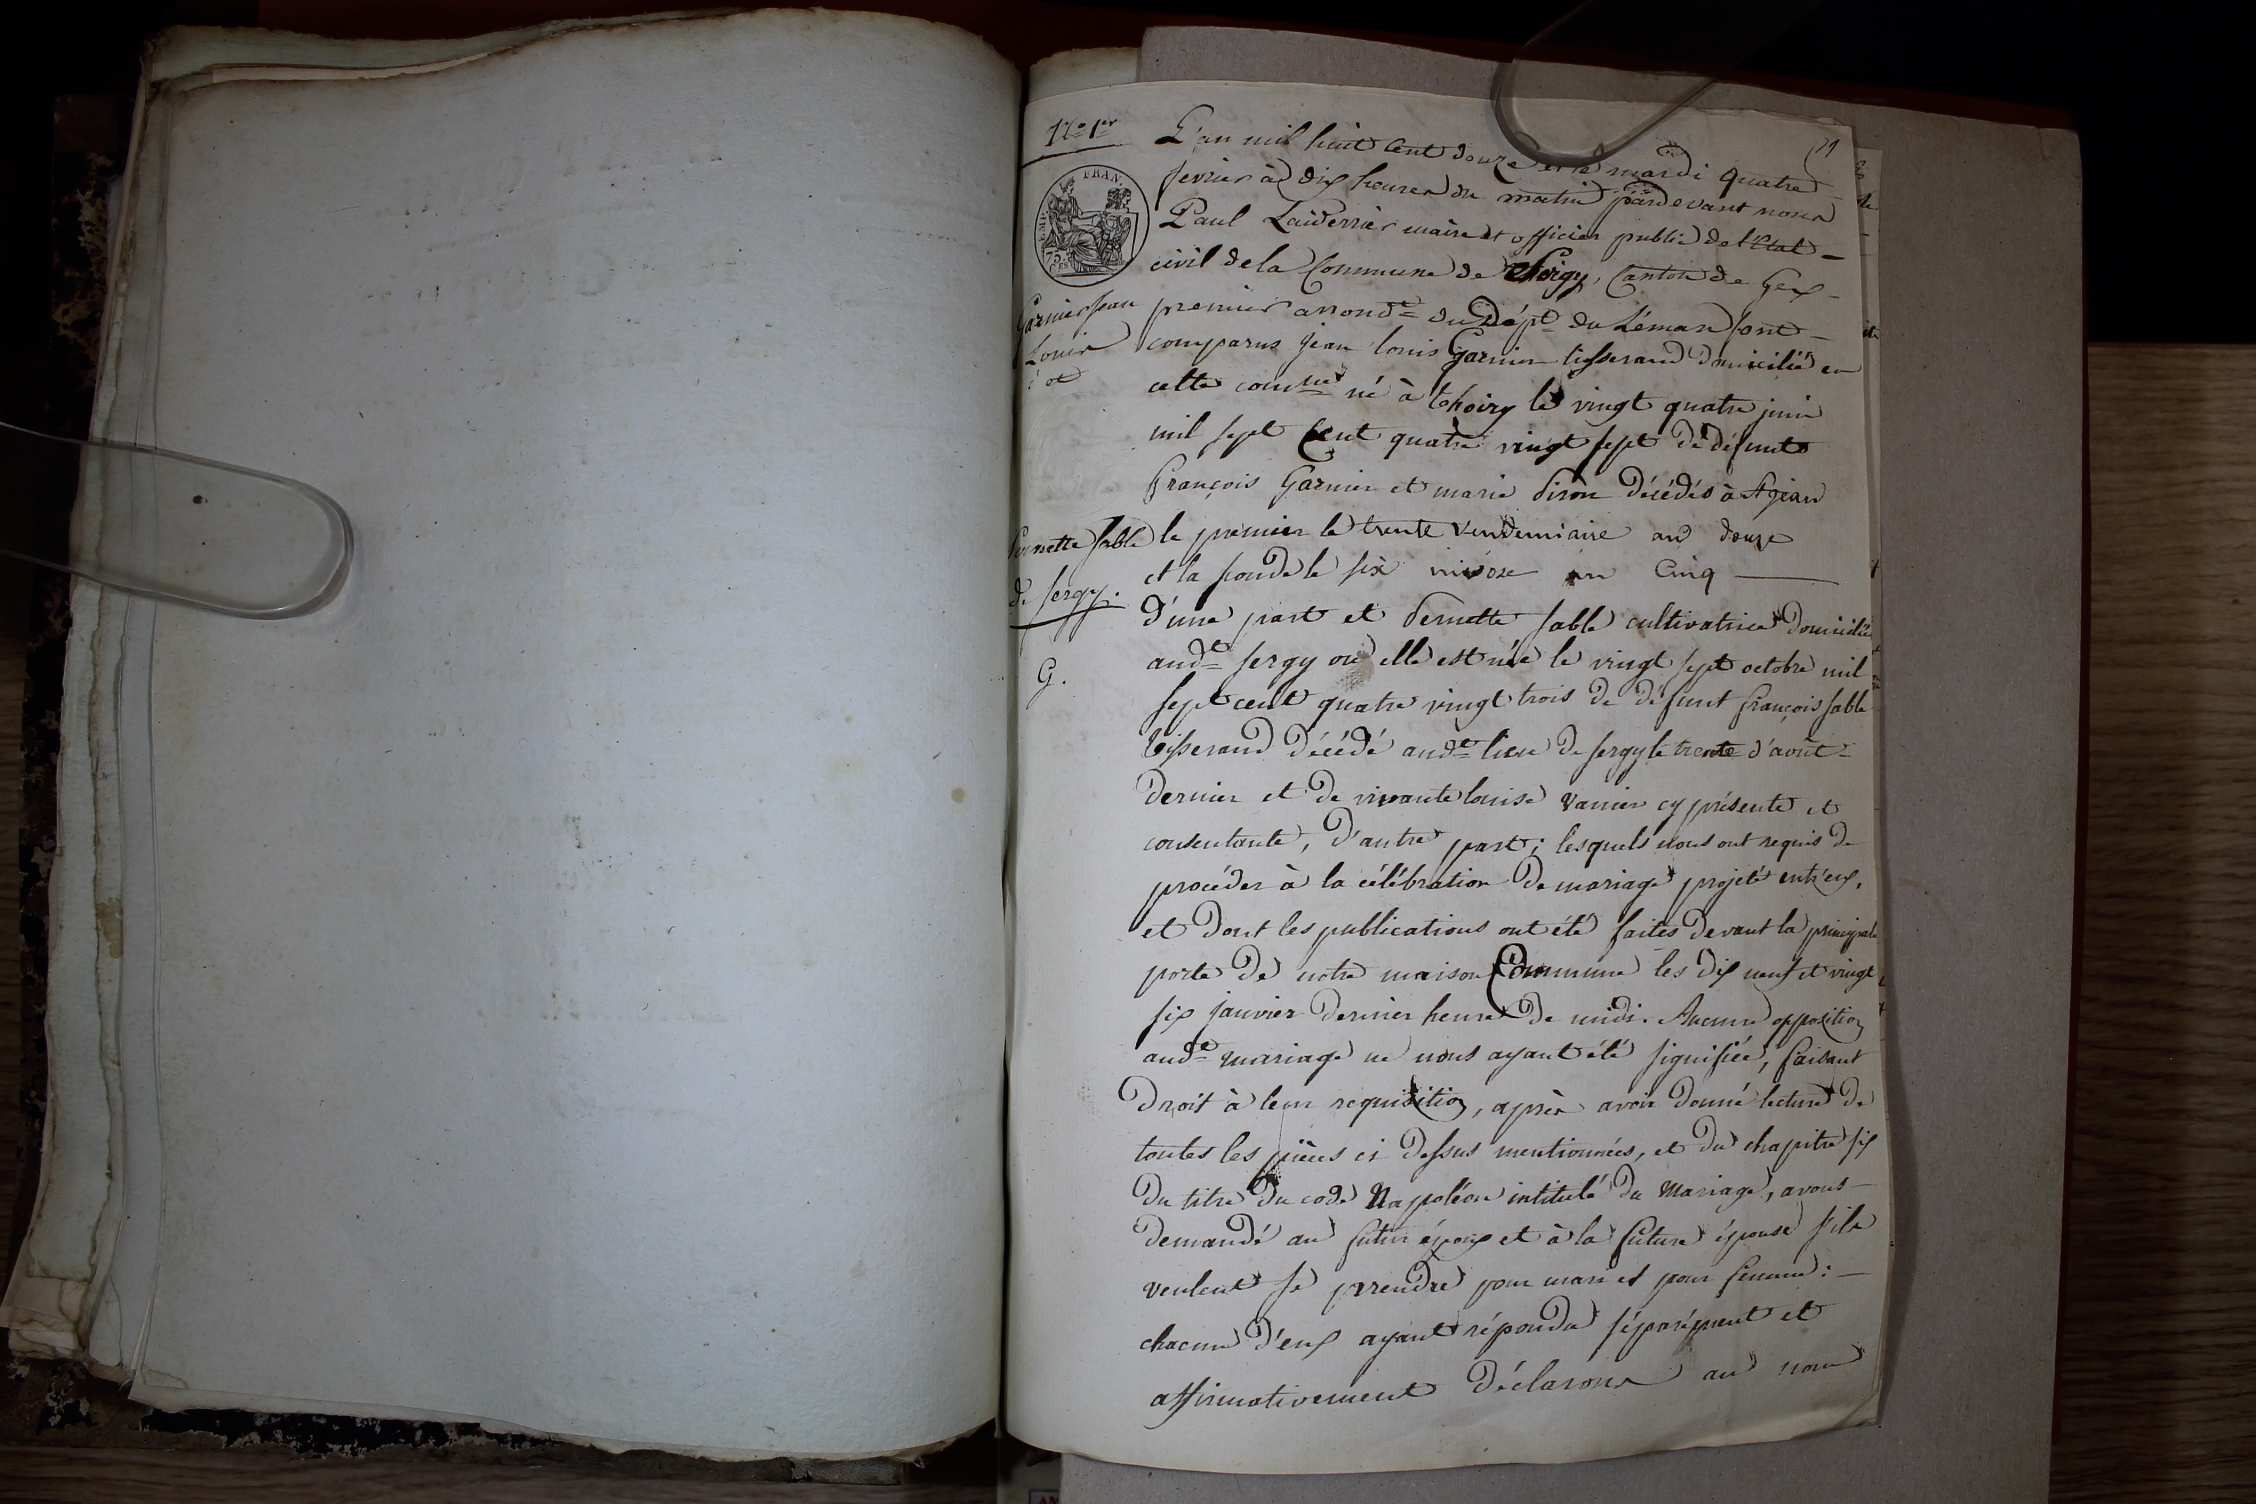 No 1er
L'an mil huit Cent douze et le mardi quatre
fevrier à dix heures du matin pardevant nous
Paul Laiderrier maire et officier public de l'Etat
civil de la Commune de Sergy, Canton de Gex
premier arrondt du Dépt du Léman sont
comparus jean louis Garnier tisserand domicilié en
cette comune né à thoiry le vingt quatre juin
mil sept Cent quatre vingt sept de défunts
François Garnier et marie décédés à
le premier le trente Vendemiaire an douze
et la seconde le six nivose an Cinq
d'une part et Pernette fable cultivatrice domiciliée
audt sergy où elle est née le vingt sept octobre mil
sept cent quatre vingt trois de défunt françois fable
tisserand décédé audt lieu de sergy le trente d'août
dernier et de vivante louise Vanier cy présente et
consentante, d'autre part; lesquels nous ont requis de
procéder à la célébration de mariage projeté entr'eux,
et dont les publications ont été faites devant la principale
porte de notre maison Commune les dix neuf et vingt
six janvier dernier heure de midi. Aucune opposition
audt mariage ne nous ayant été signifiée, faisant
droit à leur requisition, après avoir donné lecture de
toutes les pièces ci dessus mentionnées, et du chapitre six
du titre du code Napoléon intitulé du Mariage, avons
demandé au futur époux et à la future épouse s'ils
veulent se prendre pour mari et pour femme:
chacun d'eux ayant répondu séparément et
affirmativement déclarons au nom
FRAN.
EMP.
75.
Garnier jean
Louis
et
Pernette fable
de sergy.
G.